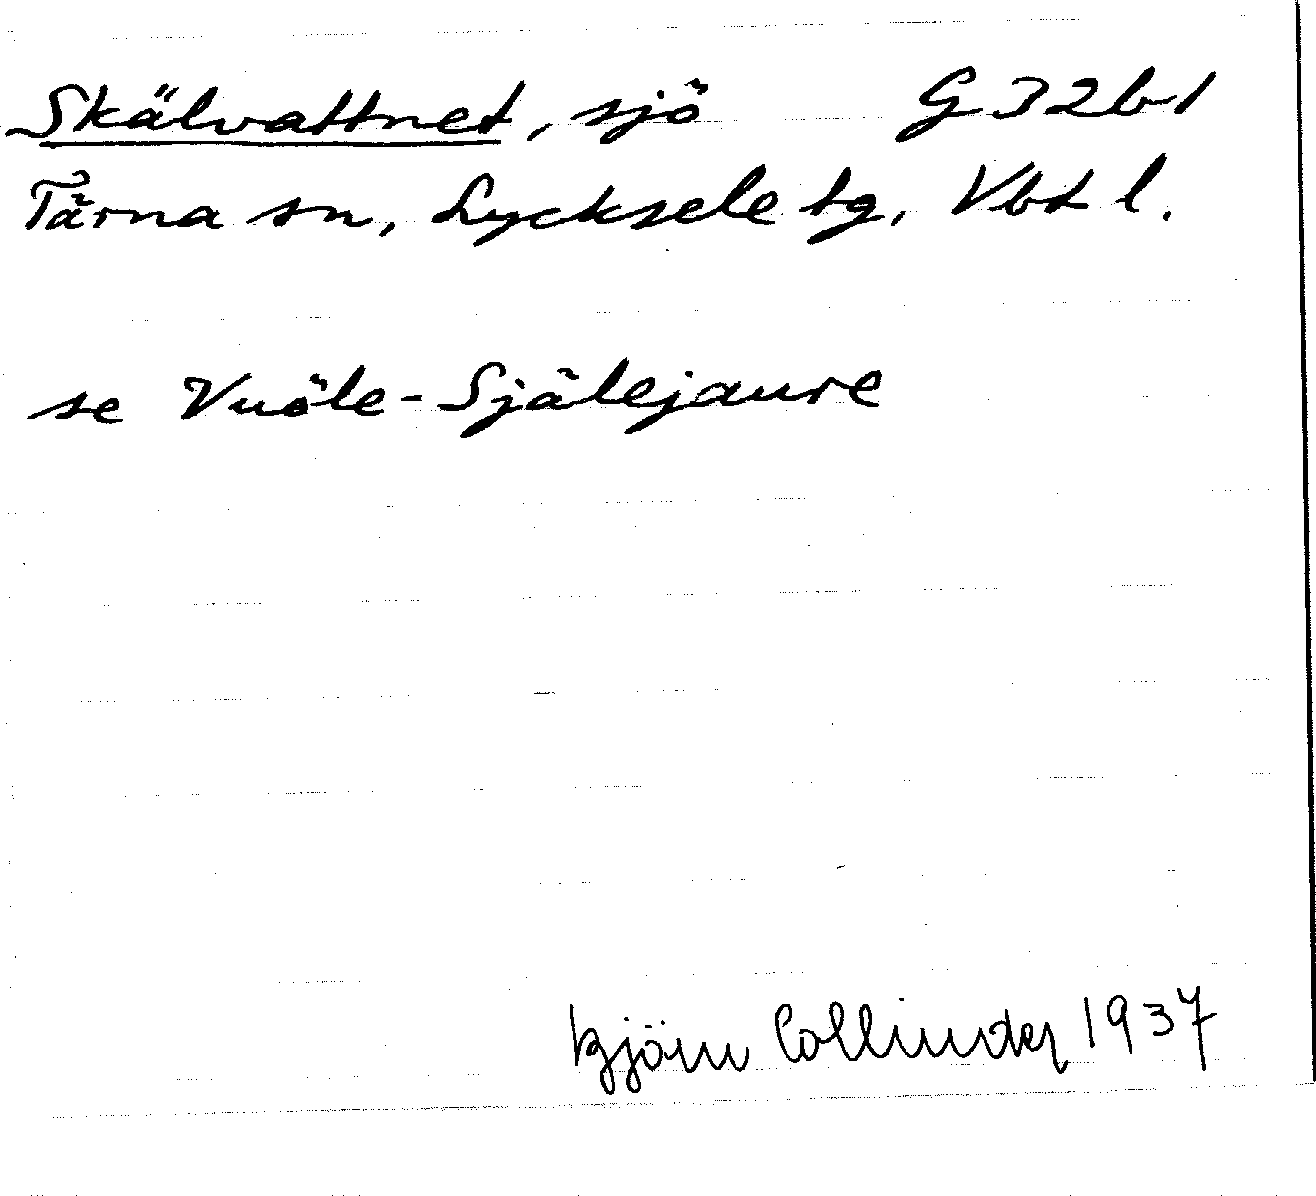 Skälvattnet, sjö G 32 b 1
Tärna sn, Lycksele tg, Vbt l.
se Vuöle-Själejaure
Björn Collinder 1937